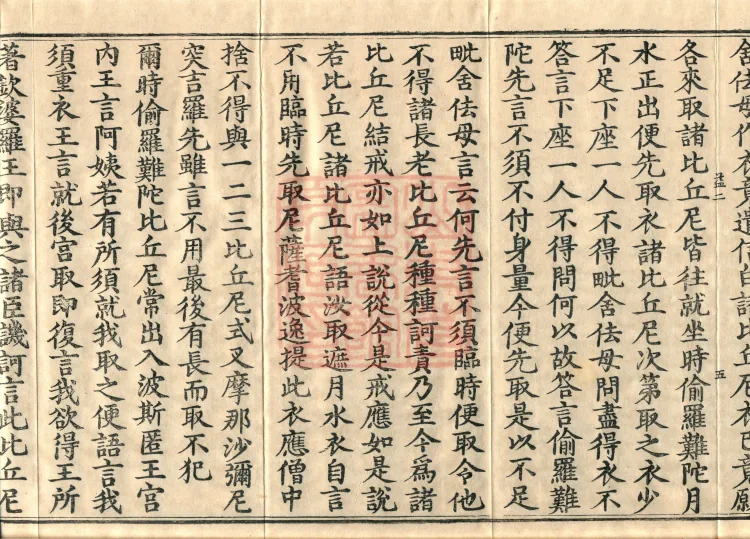 舍佉母作衣竟遣信白諸比丘尼衣已竟願
二
五
各來取諸比丘尼皆往就坐時偷羅難陀月
水正出便先取衣諸比丘尼次第取之衣少
不足下座一人不得毗舍佉母問盡得衣不
答言下座一人不得問何以故答言偷羅難
陀先言不須不付身量今便先取是以不足
毗舍佉母言云何先言不須臨時便取令他
不得諸長老比丘尼種種訶責乃至今爲諸
比丘尼結戒亦如上說從今是戒應如是說
若比丘尼諸比丘尼語汝取遮月水衣自言
不用臨時先取尼薩耆波逸提此衣應僧中
捨不得與一二三比丘尼式叉摩那沙彌尼
突吉羅先雖言不用最後有長而取不犯
爾時偷羅難陀比丘尼常出入波斯匿王宮
內王言阿姨若有所須就我取之便語言我
須重衣王言就後宮取即復言我欲得王所
著欽婆羅王即與之諸臣譏訶言此比丘尼